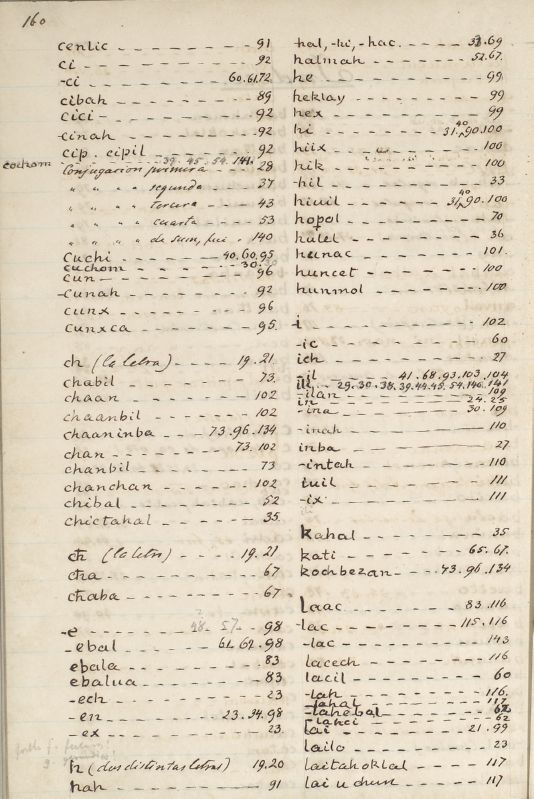 160
cenlic - - - - - - - 91
ci - - - - - - - - - 92
-ci - - - - - - - 60.61.72
cibah - - - - - - - 89
cici - - - - - - - - 92
-cinah - - - - - - - 92
cip. cipil - - - - - 92
cochom - - - 39. 45. 54. 141.
Conjugacion primera - - - 28
" " " segunda - - - 37
" " " tercera - - - 43
" " " cuarta - - - 53
" " " de sum, fui - 140
cuchi - - - - - - 40.60.95
cuchom - - - - - 30.
cun - - - - - - - - 96
-cunah - - - - - - - 92
cunx - - - - - - - - 96
cunxca - - - - - - - 95.
ch (la letra) - - - - 19.21
chabil - - - - - - - 73.
chaan - - - - - - - 102
chaanbil - - - - - - 102
chaaninba - - - 73.96.134
chan - - - - - - 73.102
chanbil - - - - - - 73
chanchan - - - - - 102
chibal - - - - - - - 52
chictahal - - - - - 35.
cħ (la letra) - - - - 19.21
cħa - - - - - - - - 67
cħaba - - - - - - - 67.
-e - - - - 48. 57. - 98
-ebal - - - - - 61.62.98
ebala - - - - - - - 83
ebalua - - - - - - - 83
-ech - - - - - - - - 23
-en - - - - - - 23.34.98
-ex - - - - - - - - 23.
h (dos distintas letras) 19.20
hah - - - - - - - - 91
hal, -hi, -hac. - - - - 38.69
halmah - - - - - - 52.67.
he - - - - - - - - - 99.
heklay - - - - - - - 99
hex - - - - - - - - 99
hi - - - - - - 31.40.90.100
hiix - - - - - - - - 100
hik - - - - - - - - 100
-hil - - - - - - - - 33
hiuil - - - - - 31.40.90.100
hopol - - - - - - - 70
hulel - - - - - - - 36
hunac - - - - - - - 101.
huncet - - - - - - - 100
hunmol - - - - - - - 100.
-i - - - - - - - - - 102
-ic - - - - - - - - - 60
ich - - - - - - - - - 27
-il - - - - 41.68.93.103.104
ili - - 29.30.38.39.44.45.54.140.141
-ilan - - - - - - - - 109
in - - - - - - - - - 24.25
-ina - - - - - - - 30.109
-inah - - - - - - - 110
inba - - - - - - - - 27
-intah - - - - - - - 110
iuil - - - - - - - - 111
-ix - - - - - - - - 111
kahal - - - - - - - 35
kati - - - - - - - 65.67.
kochbezan - - - 73.96.134
laac - - - - - - - 83.116
-lac - - - - - - - 115.116
-lac - - - - - - - - 143
lacech - - - - - - - 116
lacil - - - - - - - - 60
-lah - - - - - - - - 116.
-lahal - - - - - - - 117
-lahebal - - - - - - 62
-lahci - - - - - - - 62
lai - - - - - - - - 21.99
lailo - - - - - - - - 23
laitahoklal - - - - - 117
lai u chun - - - - - 117